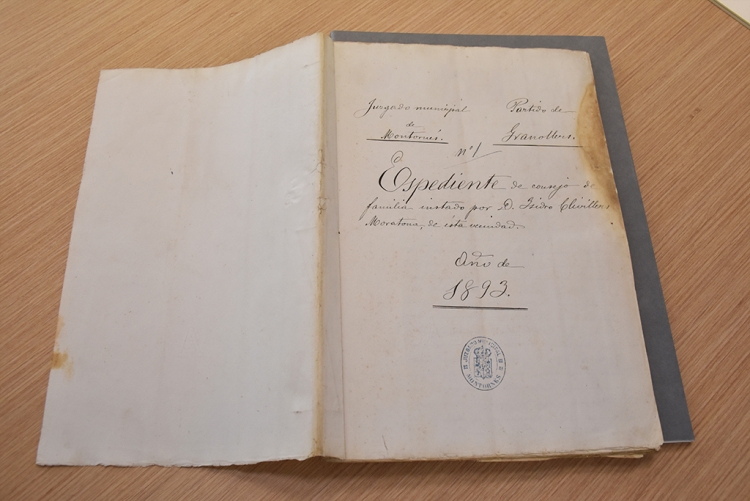 Juzgado municipal
de
Montornés.
Partido de
Granollers.
Nº 1
Espediente de consejo de
familia instado por D. Isidro Clivillers
Moratona, de ésta vecindad.
Año de
1893.
JUZGADO MUNICIPAL
MONTORNES